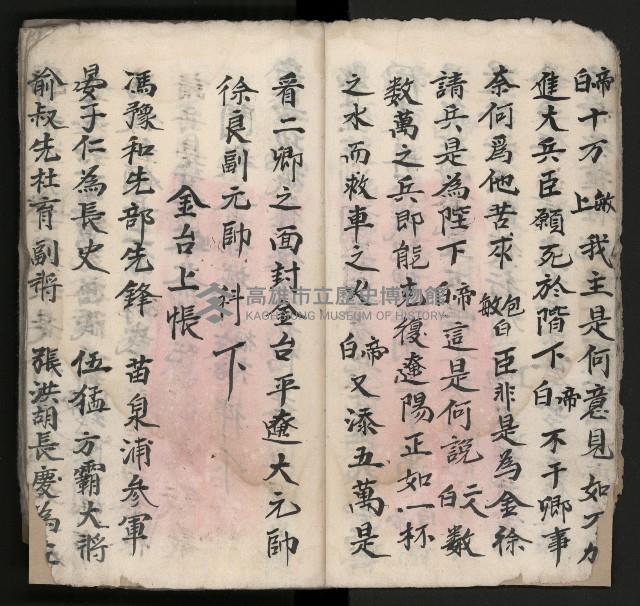 帝白十万 敏上 我主是何意見如不力
進大兵臣願死於階下 帝白 不干卿事
奈何為他苦求 包敏白 臣非是為金徐
請兵是為陛下 帝白 這是何說 二人白 數
數萬之兵即能克復遼陽正如一杯
之水而救車之火 帝白 又添五萬是
看二卿之面封金台平遼大元帥
徐良副元帥 科 下
金台上帳
馮豫和先部先鋒 苗泉浦參軍
晏子仁為長史 伍猛方霸大將
俞叔先杜育副將 張洪胡長慶為
高雄市立歷史博物館
KAOHSIUNG MUSEUM OF HISTORY